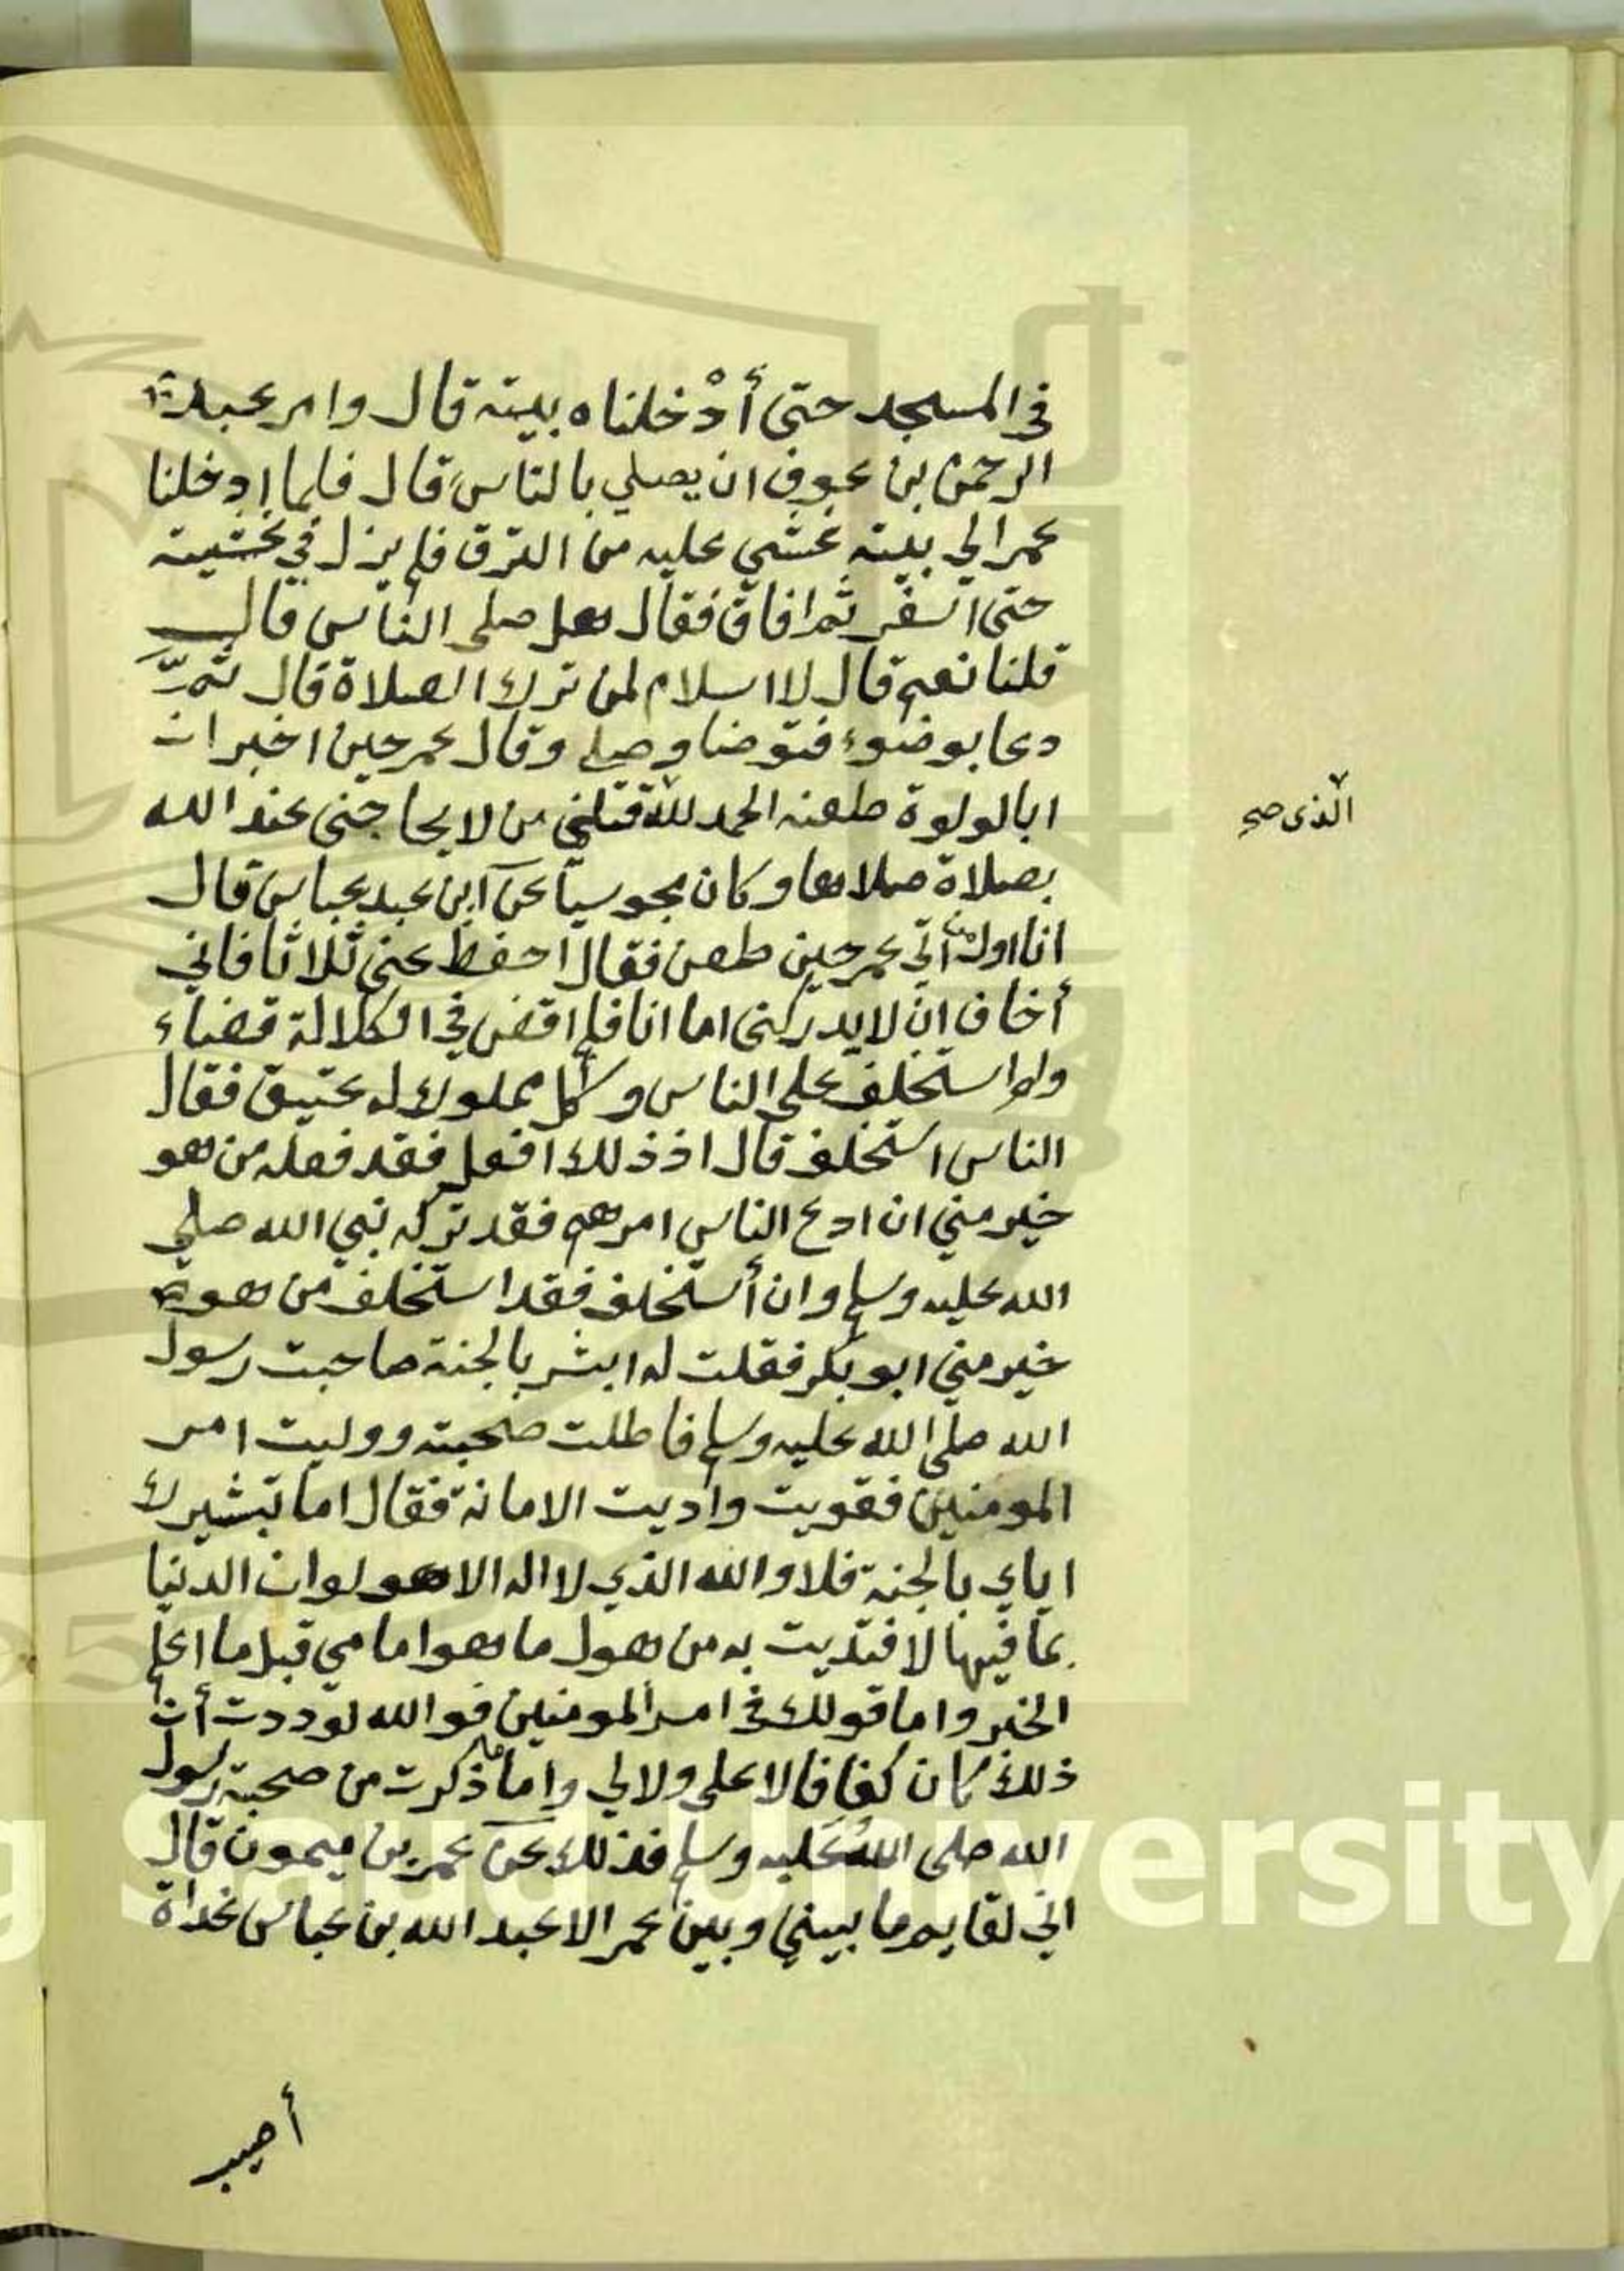 في المسجد حتى أدْخلناه بيته قال وامر عبد
الرحمن بن عوف ان يصلي بالناس قال فلما ادخلنا
عمر الي بيته غشي عليه من النزف فلم يزل في غشيته
حتى اسفر ثم افاق فقال هل صلى الناس قال
قلنا نعم قال لا اسلام لمن ترك الصلاة قال ثم
دعا بوضوء فتوضا وصلى وقال عمر حين اخبر ان
ابا لولوة طعنه الحمد لله قتلني من لا يحاجني عند الله
الذي صح
بصلاة صلاها وكان مجوسيا عن ابن عبد عباس قال
انا اول من أتي عمر حين طعن فقال احفظ عني ثلاثا فاني
أخاف ان لا يدركني اما انا فلم اقض في الكلالة قضاء
ولم استخلف على الناس وكل مملوك له عتيق فقال
الناس استخلف قال اذ ذلك افعل فقد فعله من هو
خير مني ان ادع الناس امرهم فقد تركه نبي الله صلي
الله عليه وسلم وان أستخلف فقد استخلف من هو
خير مني ابو بكر فقلت له ابشر بالجنة صاحبت رسول
الله صلى الله عليه وسلم فاطلت صحبته ووليت امر
المومنين فقويت واديت الامانة فقال اما تبشيرك
اياي بالجنة فلا والله الذي لا اله الا هو لو ان الدنيا
بما فيها لافتديت به من هول ما هو امامي قبل ما اعلم
الخبر واما قولك في امر المومنين فوالله لوددت أن
ذلك كان كفافا لا علي ولا لي واما ما ذكرت من صحبة رسول
الله صلى الله عليه وسلم فذلك عن عمر بن ميمون قال
اني لقايم ما بيني وبين عمر الا عبد الله بن عباس غداة
أصيب
King Saud University